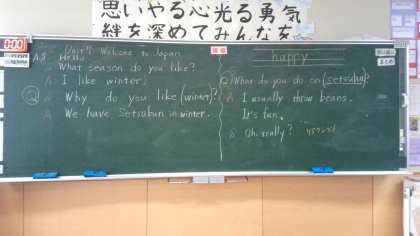 思いやる心光る勇気
絆を深めてみんなを
0:00
Unit 7 Welcome to Japan
A.S. Hello
What season do you like?
A I like winter.
Q Why do you like (winter)?
A We have Setsubun in winter.
happy
Q What do you do on (setsubun)?
A I usually throw beans.
It's fun.
Oh, really?
まとめ